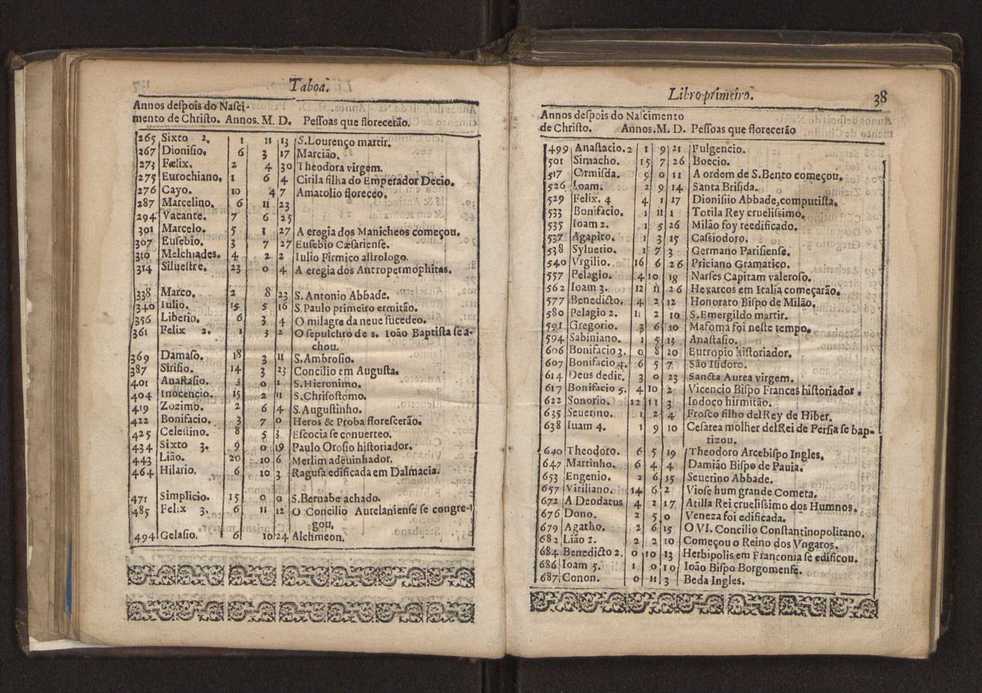 Taboa.
Annos despois do Nasci-
mento de Christo. Annos. M. D. Pessoas que florecerão.
265 Sixto 2. 1 11 13 S. Lourenço martir.
267 Dionisio. 6 3 17 Marcião.
273 Fælix. 2 4 30 Theodora virgem.
275 Eurochiano. 1 6 4 Cirila filha do Emperador Decio.
276 Cayo. 10 4 7 Amatolio floreceo.
287 Marcelino. 6 11 23
294 Vacante. 7 6 25
301 Marcelo. 5 1 27 A eregia dos Manicheos começou.
307 Eusebio. 3 7 27 Eusebio Cæsariense.
310 Melchiades. 4 2 2 Iulio Firmico astrologo.
314 Siluestre. 23 0 4 A eregia dos Antropermophitas.
338 Marco. 2 8 23 S. Antonio Abbade.
340 Iulio. 15 5 16 S. Paulo primeiro ermitão.
356 Liberio. 6 3 4 O milagre da neue sucedeo.
361 Felix 2. 1 3 2 O sepulchro de S. Ioão Baptista se a-
chou.
369 Damaso. 18 3 11 S. Ambrosio.
387 Sirisio. 14 3 23 Concilio em Augusta.
401 Anastasio. 3 0 1 S. Hieronimo.
404 Inocencio. 15 2 11 S. Chrisostomo.
419 Zozimo. 2 6 4 S. Augustinho.
422 Bonifacio. 3 7 0 Heros & Proba florescerão.
425 Celestino. 8 5 3 Escocia se conuerteo.
434 Sixto 3. 9 0 19 Paulo Orosio historiador.
443 Lião. 20 10 6 Merlim adeuinhador.
464 Hilario. 6 10 3 Ragusa edificada em Dalmacia.
471 Simplicio. 15 0 0 S. Bernabe achado.
485 Felix 3. 6 11 12 O Concilio Aurelaniense se congre-
gou.
494 Gelasio. 6 10 24 Alchimeon.
Libro primeiro. 38
Annos despois do Nascimento
de Christo. Annos. M. D. Pessoas que florecerão
499 Anastacio. 2 1 9 21 Fulgencio.
501 Simacho. 15 7 26 Boecio.
517 Ormisda. 9 0 11 A ordem de S. Bento começou.
526 Ioam. 2 9 14 Santa Brisida.
529 Felix. 4 4 1 17 Dionisio Abbade, computista.
533 Bonifacio. 1 11 1 Totila Rey cruelissimo.
535 Ioam 2. 1 5 26 Milão foy reedificado.
537 Agapito. 1 3 15 Cassiodoro.
538 Syluerio. 1 7 3 Germano Parisiense.
540 Vrgilio. 16 6 26 Priciano Gramatico.
557 Pelagio. 4 10 18 Narses Capitam valeroso.
562 Ioam 3. 12 11 26 Hexarcos em Italia começarão.
577 Benedicto. 4 2 12 Honorato Bispo de Milão.
580 Pelagio 2. 11 2 10 S. Emergildo martir.
591 Gregorio. 3 6 10 Mafoma foi neste tempo.
594 Sabiniano. 1 5 13 Anastasio.
606 Bonifacio 3. 0 8 20 Eutropio historiador.
607 Bonifacio 4. 6 5 7 São Isidoro.
614 Deus dedit. 3 0 23 Sancta Aurea virgem.
617 Bonifacio 5. 4 10 2 Vicencio Bispo Frances historiador.
622 Sonorio. 12 11 3 Iodoço hirmitão.
635 Seuerino. 1 2 4 Frosco filho del Rey de Hiber.
638 Iuam 4. 1 9 10 Cesarea molher del Rei de Persia se bap-
tizou.
640 Theodoro. 6 5 19 Theodoro Arcebispo Ingles.
647 Martinho. 6 4 4 Damião Bispo de Pauia.
653 Engenio. 2 6 15 Seuerino Abbade.
657 Viriliano. 14 6 2 Viose hum grande Cometa.
672 A Deodatus 4 2 17 Atilla Rei cruelissimo dos Humnos.
676 Dono. 2 5 0 Veneza foi edificada.
679 Agatho. 2 6 15 O VI. Concilio Constantinopolitano.
682 Lião 2. 2 2 10 Começou o Reino dos Vngaros.
684 Benedicto 2. 0 10 13 Herbipolis em Franconia se edificou.
686 Ioam 5. 1 0 10 Ioão Bispo Borgomense.
687 Conon. 0 11 3 Beda Ingles.